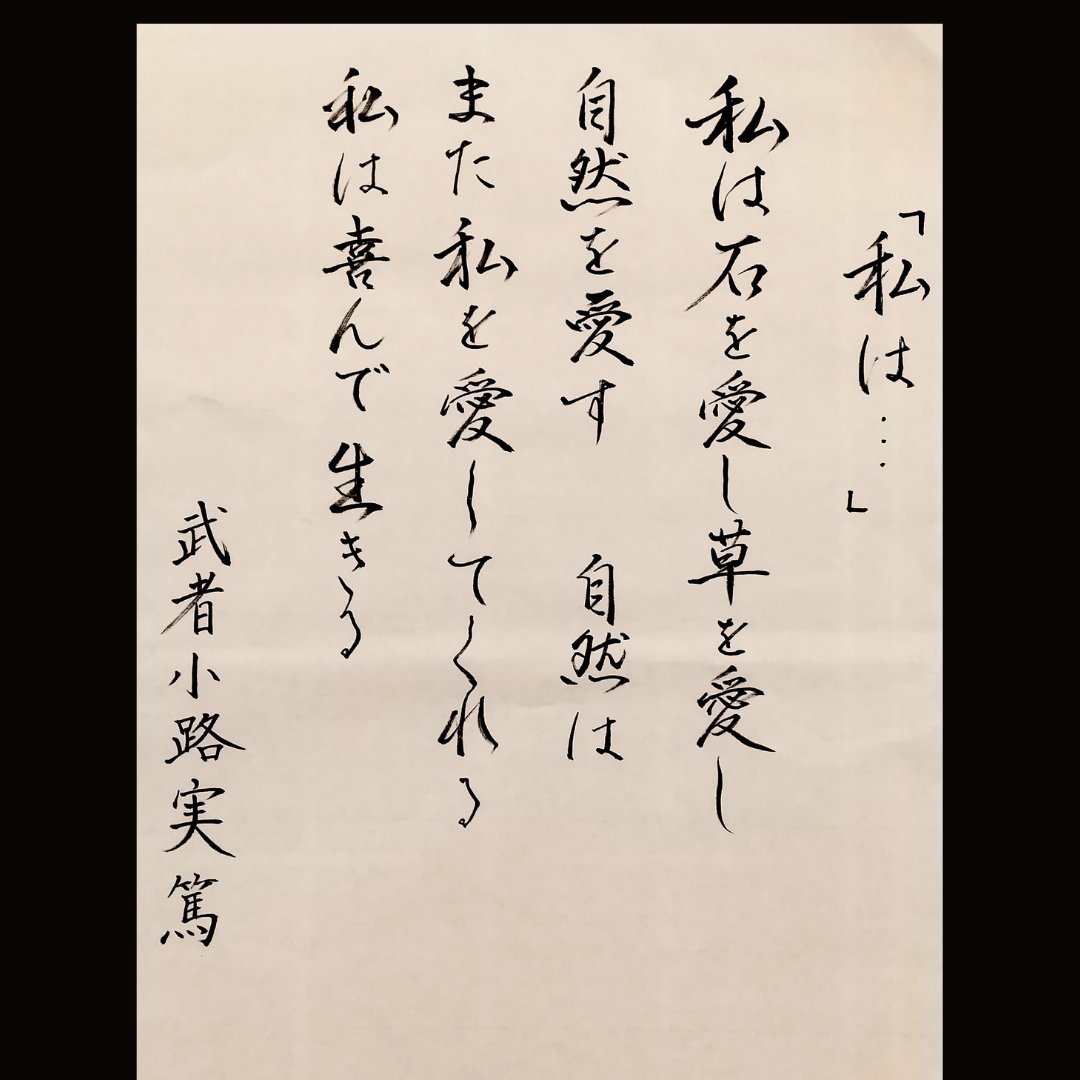 「私は…」
私は石を愛し草を愛し
自然を愛す　自然は
また私を愛してくれる
私は喜んで生きる
武者小路実篤